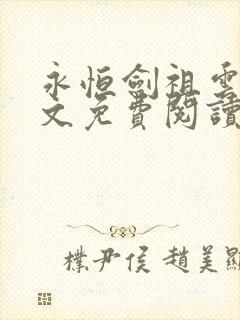 永恒劍祖雲
文免費閱讀
樸尹侯 趙美顯